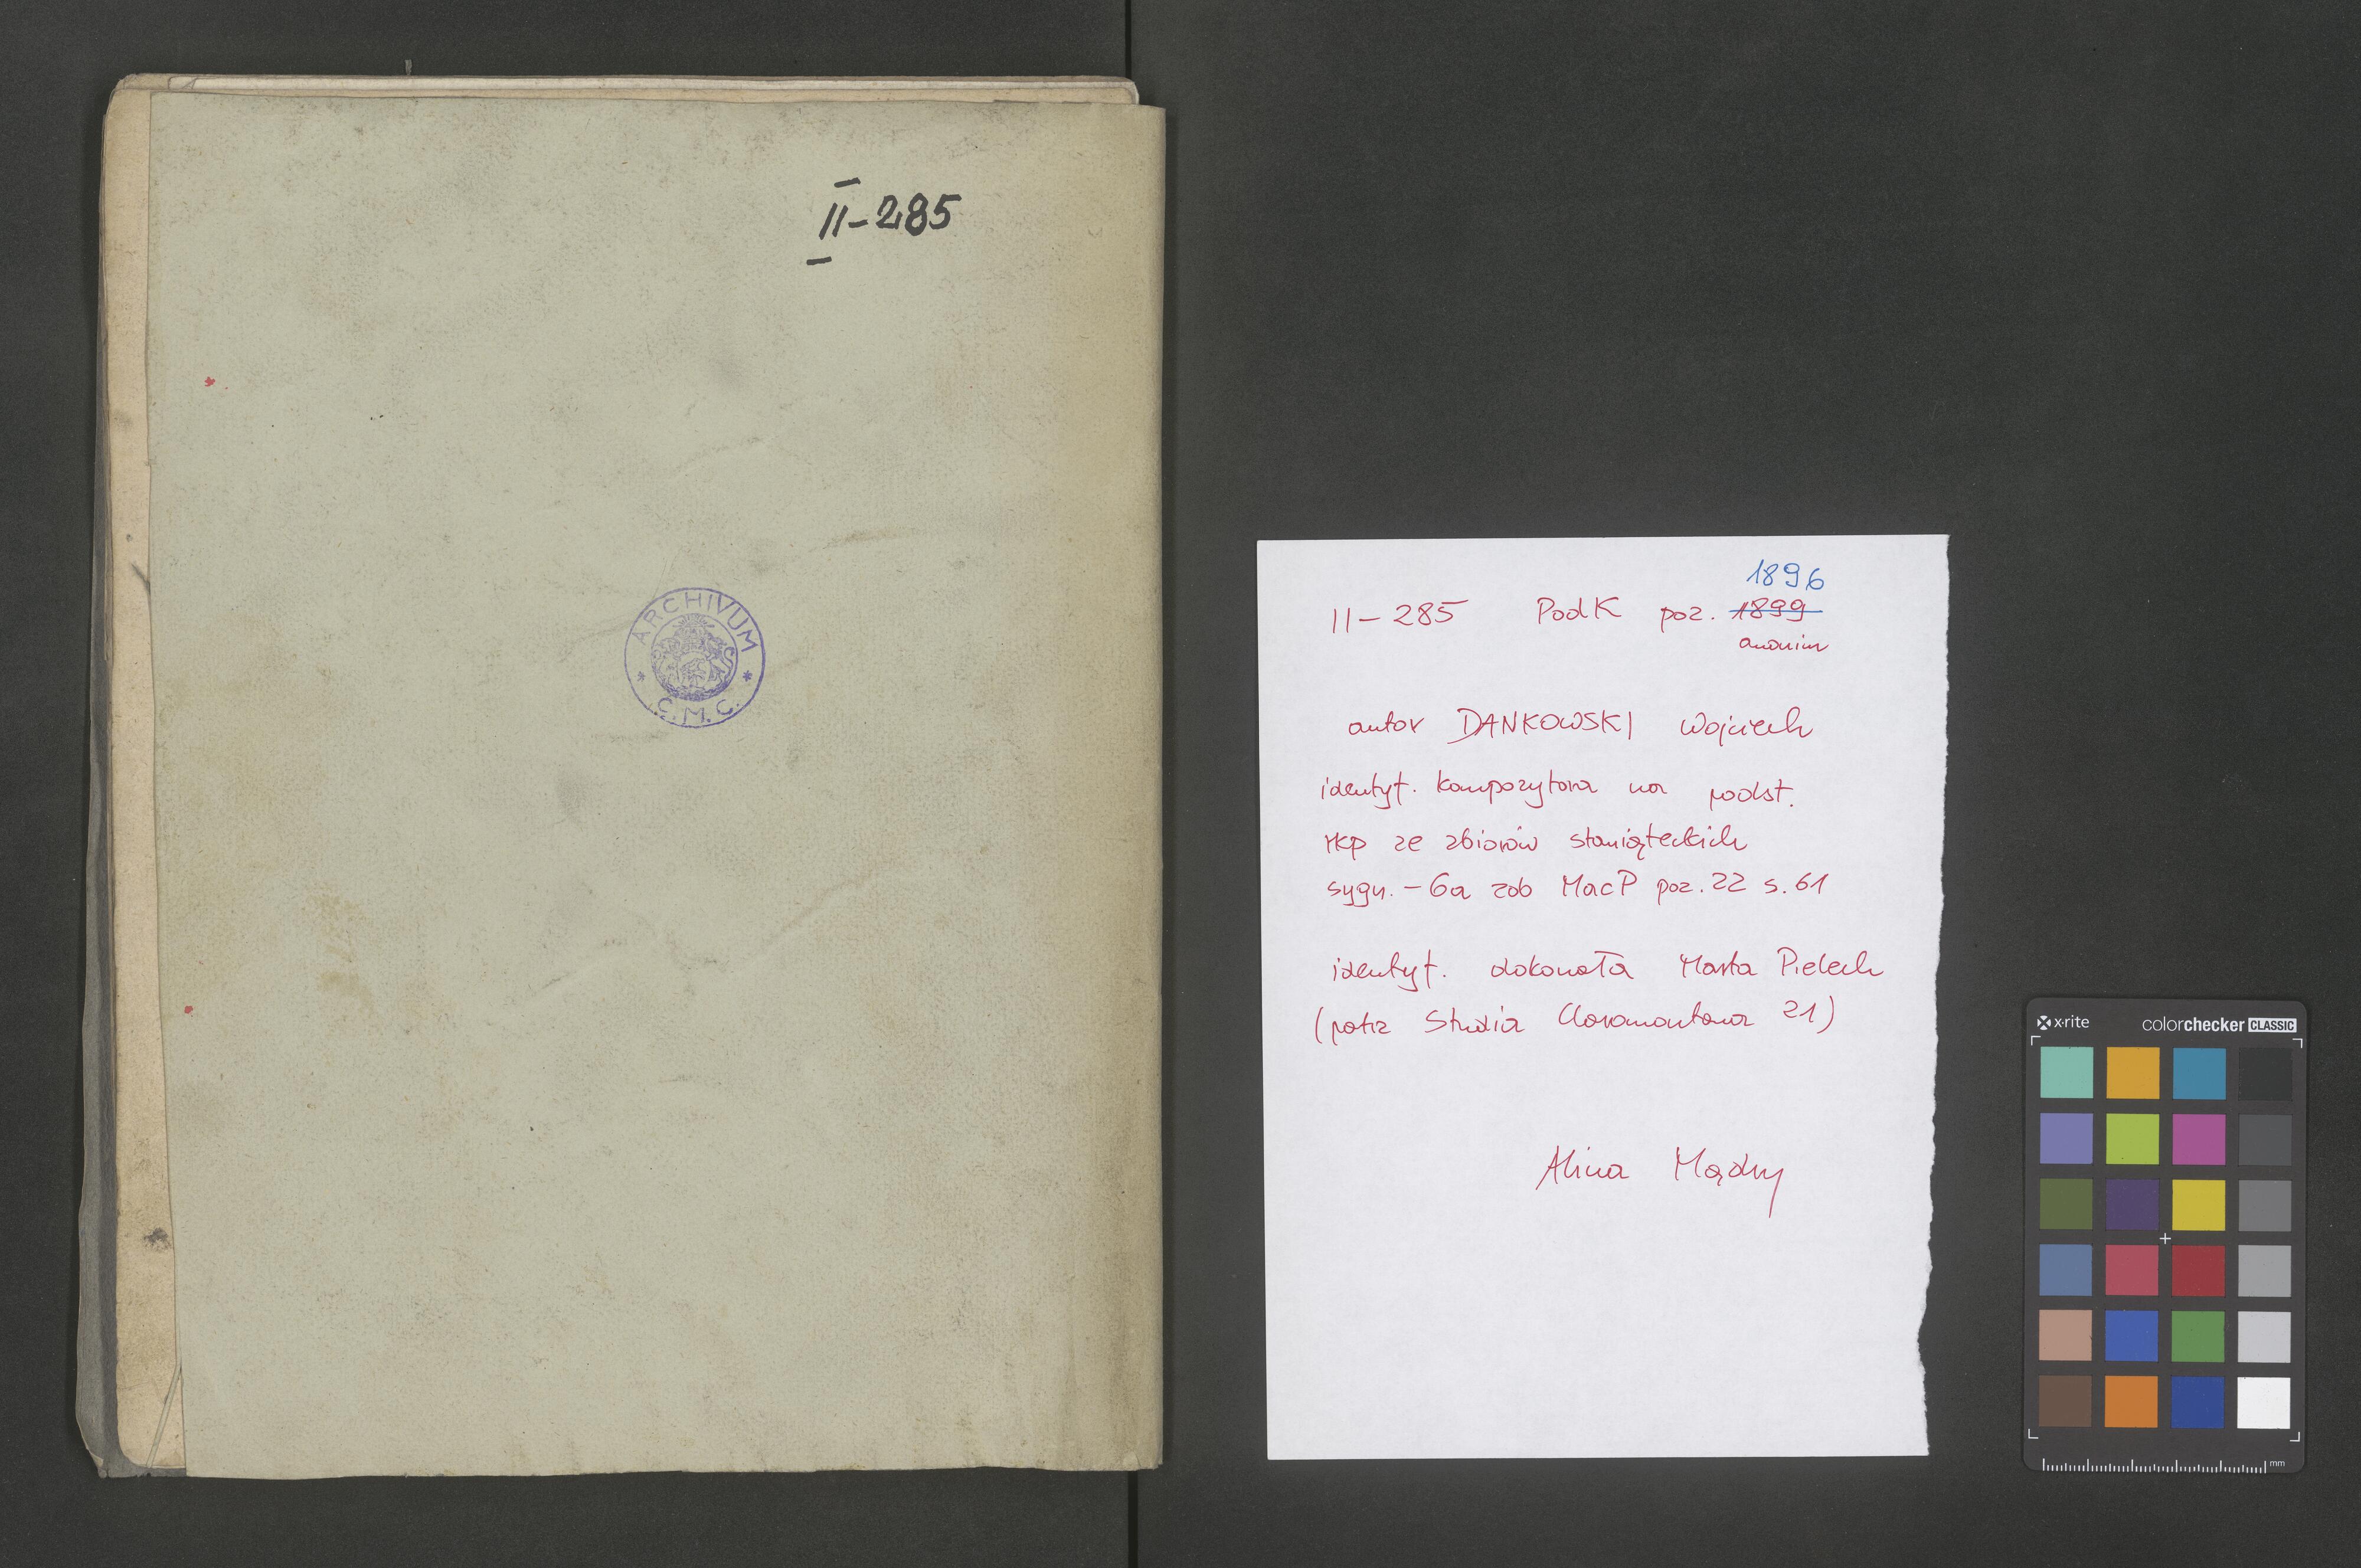 II-285
ARCHIVUM
* C.M.C. *
1896
II-285 PodK poz. 1899
anonim
autor DANKOWSKI Wojciech
identyf. kompozytora na podst.
rkp ze zbiorów staniąteckich
sygn. - 6a zob MacP poz. 22 s. 61
identyf. dokonała Marta Pielech
(patrz Studia Claromontana 21)
Alina Mądry
x·rite colorchecker CLASSIC
mm